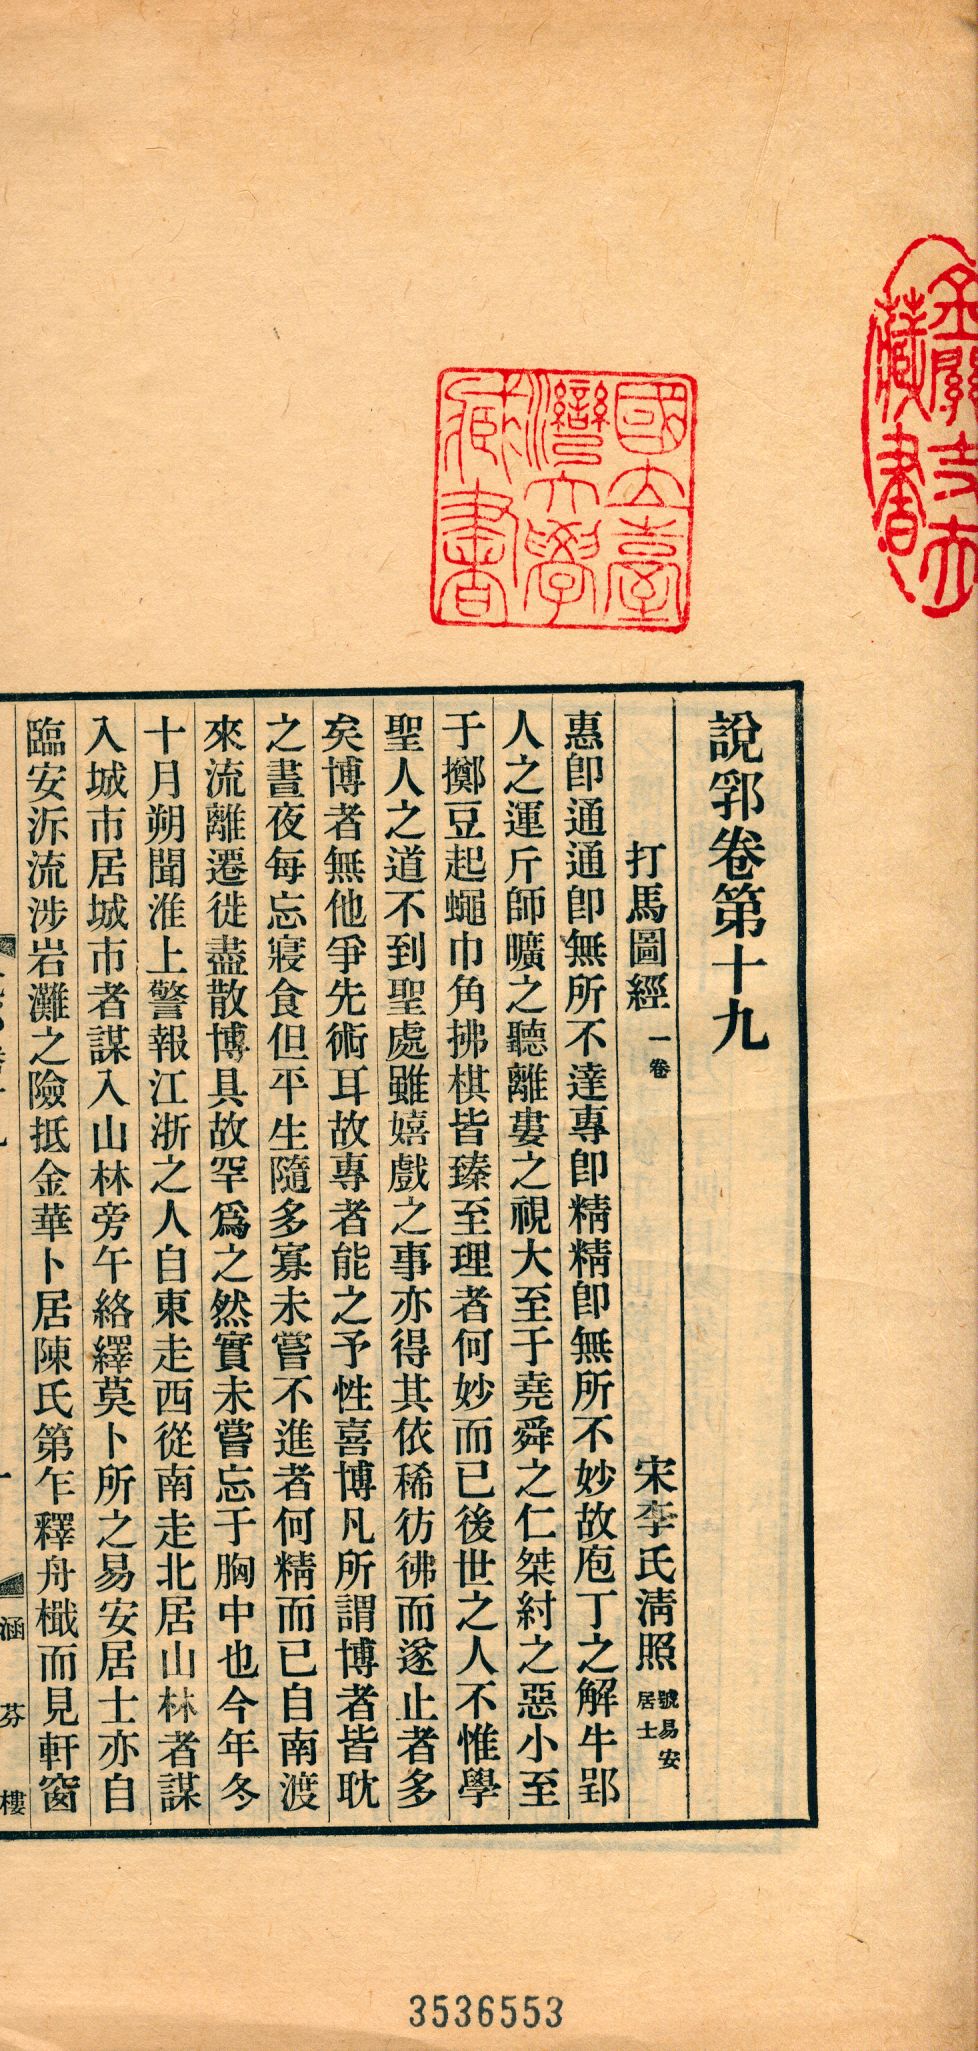 說郛卷第十九
打馬圖經 一卷 宋李氏清照 號易安居士
惠卽通通卽無所不達專卽精精卽無所不妙故庖丁之解牛郢
人之運斤師曠之聽離婁之視大至于堯舜之仁桀紂之惡小至
于擲豆起蠅巾角拂棋皆臻至理者何妙而已後世之人不惟學
聖人之道不到聖處雖嬉戲之事亦得其依稀彷彿而遂止者多
矣博者無他爭先術耳故專者能之予性喜博凡所謂博者皆耽
之晝夜每忘寢食但平生隨多寡未嘗不進者何精而已自南渡
來流離遷徙盡散博具故罕爲之然實未嘗忘于胸中也今年冬
十月朔聞淮上警報江浙之人自東走西從南走北居山林者謀
入城市居城市者謀入山林旁午絡繹莫卜所之易安居士亦自
臨安泝流涉岩灘之險抵金華卜居陳氏第乍釋舟檝而見軒窗
涵芬樓
國立臺灣大學藏書
藏書
3536553